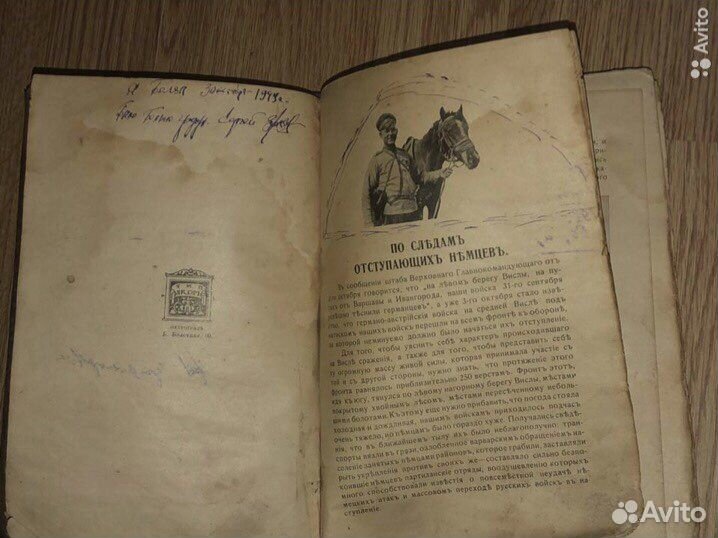 1943 г.
ПЕТРОГРАДЪ
ПО СЛѢДАМЪ
ОТСТУПАЮЩИХЪ НѢМЦЕВЪ.
Въ сообщеніи штаба Верховнаго Главнокомандующаго отъ
октября говорится, что „на лѣвомъ берегу Вислы, на пу-
отъ Варшавы и Ивангорода, наши войска
тѣснили германцевъ", а уже 3-го октября стало извѣ-
что германо-австрійскія войска на средней Вислѣ подъ
нашихъ войскъ перешли на всемъ фронтѣ къ оборонѣ,
которой неминуемо должно было начаться ихъ отступленіе.
Для того, чтобы уяснить себѣ характеръ происходившаго
на Вислѣ сраженія, а также для того, чтобы представить себѣ
ту огромную массу живой силы, которая принимала участіе съ
той и съ другой стороны, нужно знать, что протяженіе этого
фронта равнялось приблизительно 250 верстамъ. Фронтъ этотъ,
къ югу, тянулся по лѣвому нагорному берегу Вислы, мѣстами
покрытому хвойнымъ лѣсомъ, мѣстами пересѣченному неболь-
шими болотами. Къ этому еще нужно прибавить, что погода стояла
холодная и дождливая, нашимъ войскамъ приходилось подчасъ
очень тяжело, но нѣмцамъ было гораздо хуже. Получались свѣдѣ-
что въ ближайшемъ тылу ихъ было неблагополучно: тран-
спорты вязли въ грязи, озлобленное варварскимъ обращеніемъ на-
селеніе занятыхъ нѣмцами районовъ, которое грабили, заставляли
укрѣпленія противъ своихъ же—составляло сильно безпо-
коившіе нѣмцевъ партизанскіе отряды, воодушевленію которыхъ
много способствовали извѣстія о повсемѣстной неудачѣ нѣ-
мецкихъ атакъ и массовомъ переходѣ русскихъ войскъ въ на-
ступленіе.
Avito
Avito